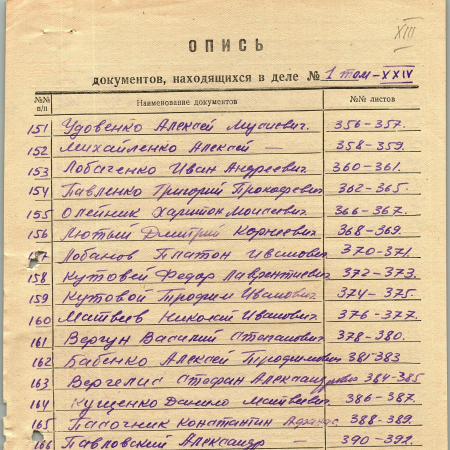 XIII
ОПИСЬ
документов, находящихся в деле № 1 том-XXIV
№№ п/п Наименование документов №№ листов
151 Удовенко Алексей Мусиевич. 356-357.
152 Михайленко Алексей — 358-359.
153 Лобаченко Иван Андреевич. 360-361.
154 Павленко Григорий Прокофевич 362-365.
155 Олейник Харитон Моисеевич 366-367.
156 Лютый Дмитрий Корнеевич 368-369.
157 Лобанов Платон Иванович 370-371.
158 Кутовой Федор Лаврентиевич 372-373.
159 Кутовой Трофим Иванович. 374-375.
160 Матвеев Николай Иванович. 376-377.
161 Вергун Василий Степанович 378-380.
162 Бабенко Алексей Трофимович 381-383
163 Вергелис Стефан Александрович 384-385
164 Кущенко Данило Матвеевич 386-387
165 Пасечник Константин 388-389.
166 Павловский Александр — 390-392.